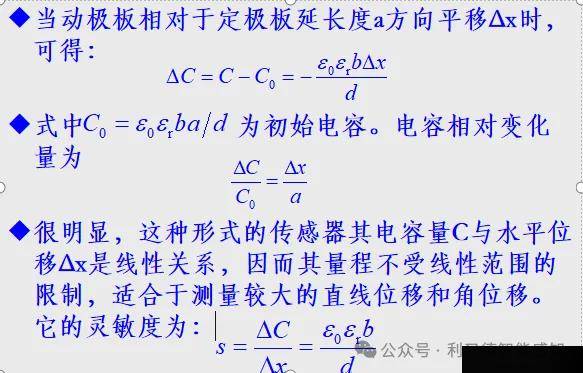 ◆当动极板相对于定极板延长度a方向平移Δx时，
可得：
ΔC = C − C₀ = − ε₀εᵣbΔx / d
◆式中C₀ = ε₀εᵣba/d 为初始电容。电容相对变化
量为
ΔC / C₀ = Δx / a
◆很明显，这种形式的传感器其电容量C与水平位
移Δx是线性关系，因而其量程不受线性范围的
限制，适合于测量较大的直线位移和角位移。
它的灵敏度为：
s = ΔC / Δx = ε₀εᵣb / d
公众号 ·